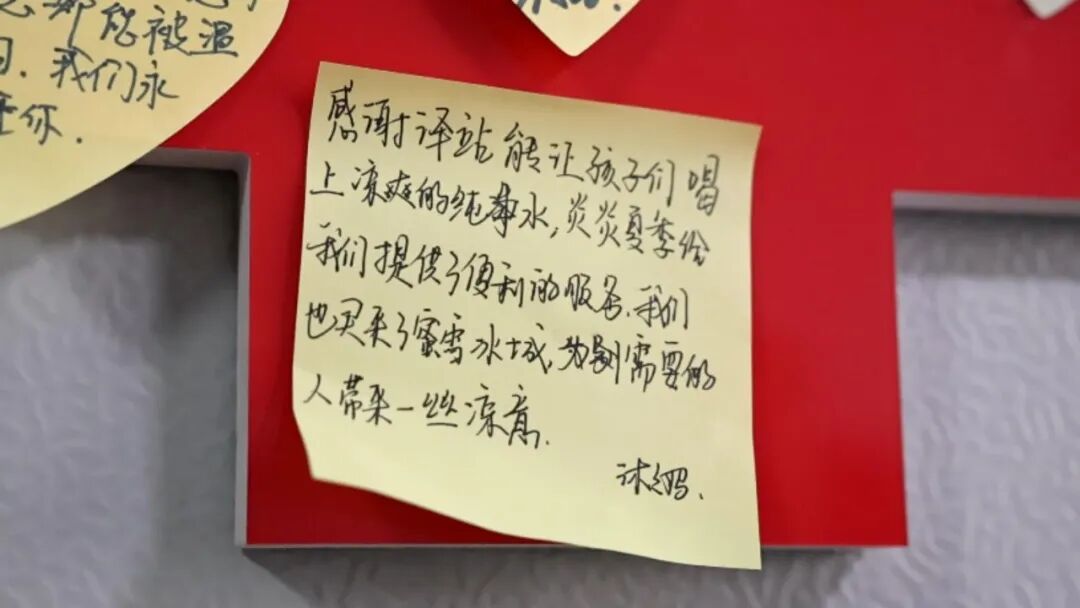 都能被温
我们永
你.
感谢译站能让孩子们喝
上凉爽的纯净水,炎炎夏季给
我们提供了便利的服务.我们
也买来了蜜雪冰城,为需要的
人带来一丝凉意.
沐妈.